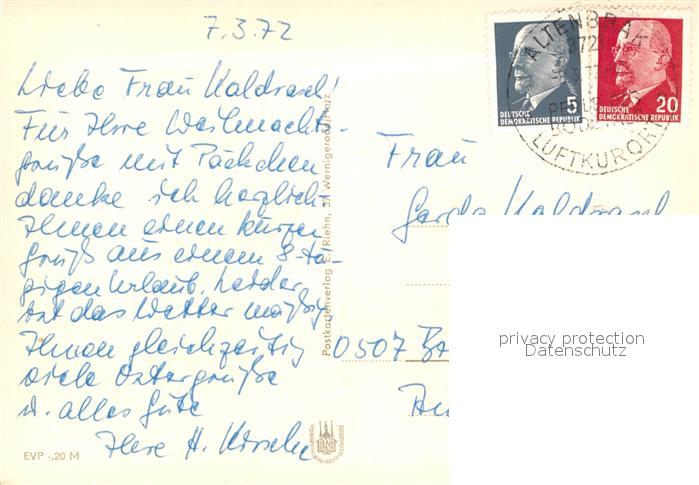 7.3.72
Liebe Frau Kaldrack!
Für Ihre Weihnachts-
grüße mit Päckchen
danke ich herzlich
Ihnen einen kurzen
Gruß aus einem 8-tä-
gigen Urlaub. Leider
ist das Wetter mäßig
Ihnen gleichzeitig
viele Ostergrüße
u. alles Gute
Ihre H.
EVP -,20 M
Postkartenverlag E. Riehn, 37 Wernigerode/Harz
ALTENBRAK
LUFTKURORT
5
DEUTSCHE
DEMOKRATISCHE REPUBLIK
20
DEUTSCHE
DEMOKRATISCHE REPUBLIK
Frau
Gerda Kaldrack
0507
privacy protection
Datenschutz